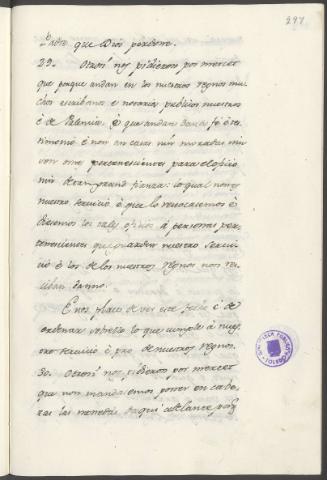 297
Padre, que Dios perdone.
29. Otrosi nos pidieron por merced
que porque andan en los nuestros regnos mu
chos escribanos e notarios publicos nuestros
é de Palencia, é que andan dar fé é tes
timonio é non an casas nin moradas nin
son omes pertenescientes para el oficio
nin de tan grand fianza: lo qual non es
nuestro servicio, é que lo revocasemos é
diesemos los tales oficios á personas per
tenescientes que guarden nuestro servi
cio é los de los nuestros regnos non res
ciban danno.
E nos place de ver este fecho é de
ordenar sobrello lo que cumple á nues
tro servicio é pro de nuestros regnos.
30. Otrosi nos pidieron por merced
que non mandasemos poner en cabe
zas las monedas daqui adelante, por